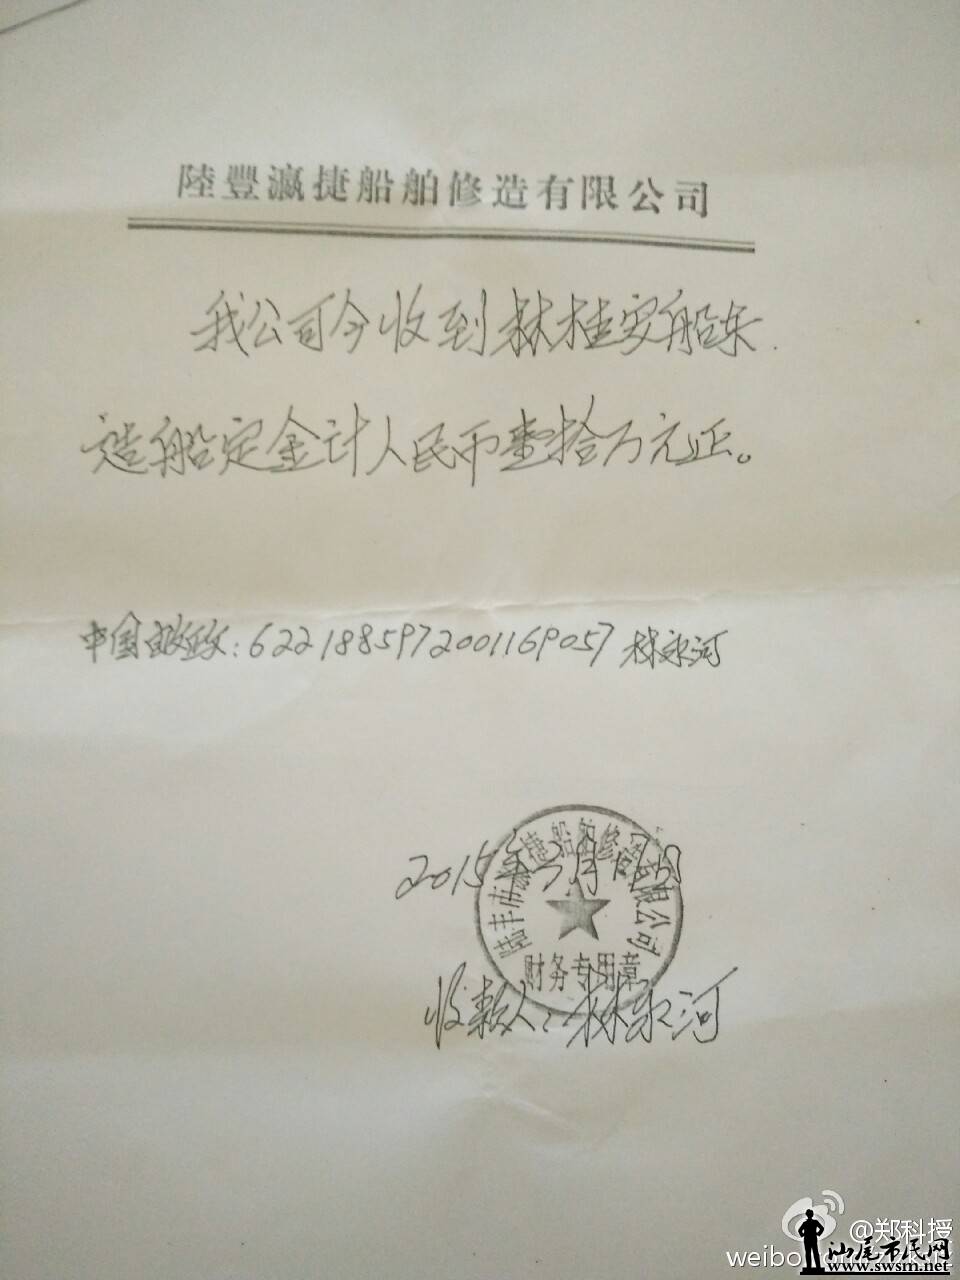 陸豐瀛捷船舶修造有限公司
我公司今收到林桂安船东
造船定金计人民币壹拾万元正。
中国邮政:6221885972001169057 林永河
2015年3月17日
陆丰市瀛捷船舶修造有限公司
财务专用章
收款人:林永河
@郑科授
weibo.com
汕尾市民网
www.swsm.net